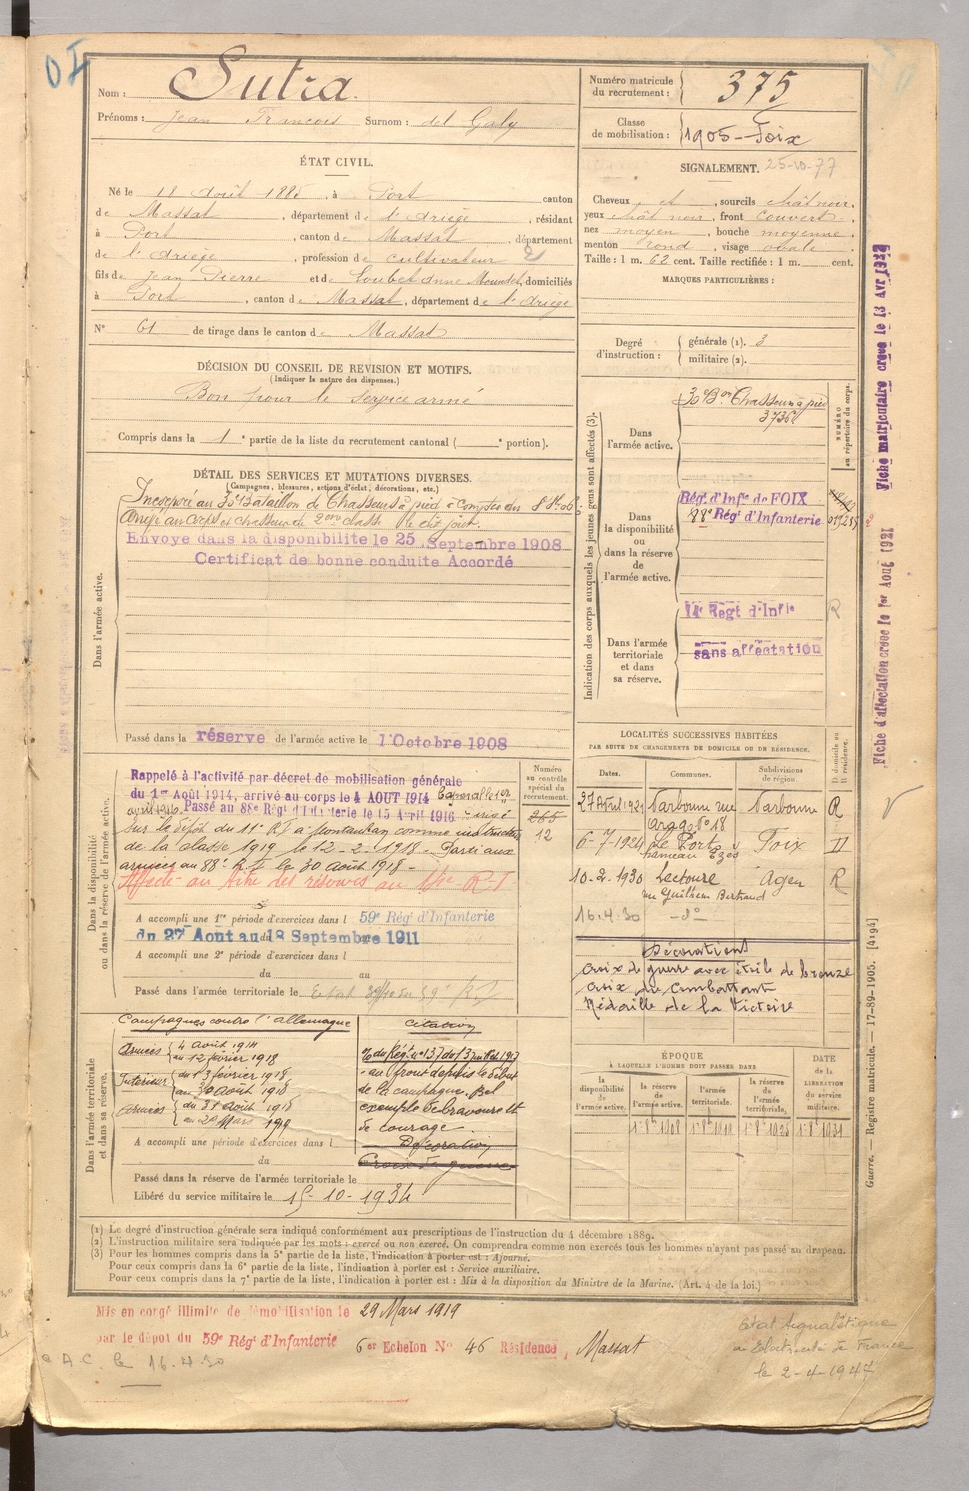 Nom : Sutra
Prénoms : Jean François Surnom : del Galy
ÉTAT CIVIL.
Né le 18 août 1885, à Port canton
de Massat, département de l'Ariège, résidant
à Port, canton de Massat, département
de l'Ariège, profession de cultivateur
fils de Jean Pierre et de Loubet Anne domiciliés
à Port, canton de Massat, département de l'Ariège
N° 61 de tirage dans le canton de Massat
DÉCISION DU CONSEIL DE REVISION ET MOTIFS.
(Indiquer la nature des dispenses.)
Bon pour le service armé
Compris dans la 1e partie de la liste du recrutement cantonal ( e portion).
Numéro matricule du recrutement : 375
Classe de mobilisation : 1905 - Foix
SIGNALEMENT. 25-10-77
Cheveux et, sourcils chât noir,
yeux chât noir, front couvert,
nez moyen, bouche moyenne,
menton rond, visage ovale
Taille : 1 m. 62 cent. Taille rectifiée : 1 m. cent.
MARQUES PARTICULIÈRES :
Degré d'instruction : générale (1). 3
militaire (2).
DÉTAIL DES SERVICES ET MUTATIONS DIVERSES.
(Campagnes, blessures, actions d'éclat, décorations, etc.)
Dans l'armée active.
Incorporé au 30e Bataillon de Chasseurs à pied à compter du 8 8bre 06
Arrivé au corps et chasseur de 2eme classe le dit jour.
Envoyé dans la disponibilité le 25 Septembre 1908
Certificat de bonne conduite Accordé
Passé dans la réserve de l'armée active le 1 Octobre 1908
Indication des corps auxquels les jeunes gens sont affectés (3).
NUMÉRO au répertoire du corps.
Dans l'armée active.
30e Bon Chasseurs à pied
3736
Dans la disponibilité ou dans la réserve de l'armée active.
Régt. d'Infie de FOIX
88e Régt d'Infanterie
Dans l'armée territoriale et dans sa réserve.
14e Régt d'Infie
sans affectation
R
Fiche matriculaire créée le 13 Avr 1922
Fiche d'affectation créée le 1er Aout 1921
Dans la disponibilité ou dans la réserve de l'armée active.
Numéro au contrôle spécial du recrutement.
265
12
Rappelé à l'activité par décret de mobilisation générale
du 1er Août 1914, arrivé au corps le 4 AOUT 1914 Caporal le 1er
avril 1916. Passé au 88e Régt d'Infanterie le 15 Avril 1916 - dirigé
sur le dépôt du 11e RI à Montauban comme instructeur
de la classe 1919 le 12-2-1918 - Parti aux
armées au 88e RI le 30 août 1918 -
Affecté au titre des réserves au
A accompli une 1re période d'exercices dans l 59e Régt d'Infanterie
du 27 Aout au 18 Septembre 1911
A accompli une 2e période d'exercices dans l
du au
Passé dans l'armée territoriale le
LOCALITÉS SUCCESSIVES HABITÉES
PAR SUITE DE CHANGEMENTS DE DOMICILE OU DE RÉSIDENCE.
Dates. Communes. Subdivisions de région. D domicile ou R résidence.
27 Avril 1921 Narbonne rue Arago N° 18 Narbonne R
6-7-1924 Le Port hameau Ezès Foix D
10-2-1930 Lectoure rue Guilhem Bertrand Agen R
16.4.30 -do-
Décorations
Croix de guerre avec étoile de bronze
Croix du Combattant
Médaille de la Victoire
Dans l'armée territoriale et dans sa réserve.
Campagnes contre l'allemagne
Armées 4 août 1914
au 12 février 1918
Intérieur du 13 février 1918
au 30 août 1918
Armées du 31 août 1918
au 29 Mars 1919
A accompli une période d'exercices dans l
du
Citation
au front depuis le début
de la campagne. Bel
exemple de bravoure et
de courage.
Décoration
Croix de guerre
Passé dans la réserve de l'armée territoriale le
Libéré du service militaire le 15-10-1934
ÉPOQUE
À LAQUELLE L'HOMME DOIT PASSER DANS
la disponibilité de l'armée active. la réserve de l'armée active. l'armée territoriale. la réserve de l'armée territoriale.
DATE DE LA LIBÉRATION DU SERVICE militaire.
Guerre. — Registre matricule. — 17-89-1905. [4194]
(1) Le degré d'instruction générale sera indiqué conformément aux prescriptions de l'instruction du 4 décembre 1889.
(2) L'instruction militaire sera indiquée par les mots : exercé ou non exercé. On comprendra comme non exercés tous les hommes n'ayant pas passé au drapeau.
(3) Pour les hommes compris dans la 5e partie de la liste, l'indication à porter est : Ajourné.
Pour ceux compris dans la 6e partie de la liste, l'indication à porter est : Service auxiliaire.
Pour ceux compris dans la 7e partie de la liste, l'indication à porter est : Mis à la disposition du Ministre de la Marine. (Art. 4 de la loi.)
Mis en congé illimité de démobilisation le 29 Mars 1919
par le dépot du 59e Régt d'Infanterie 6e Echelon N° 46 Résidence, Massat
A.C. le 16.4.30
Etat signalétique
a Electricité de France
le 2-4-1947